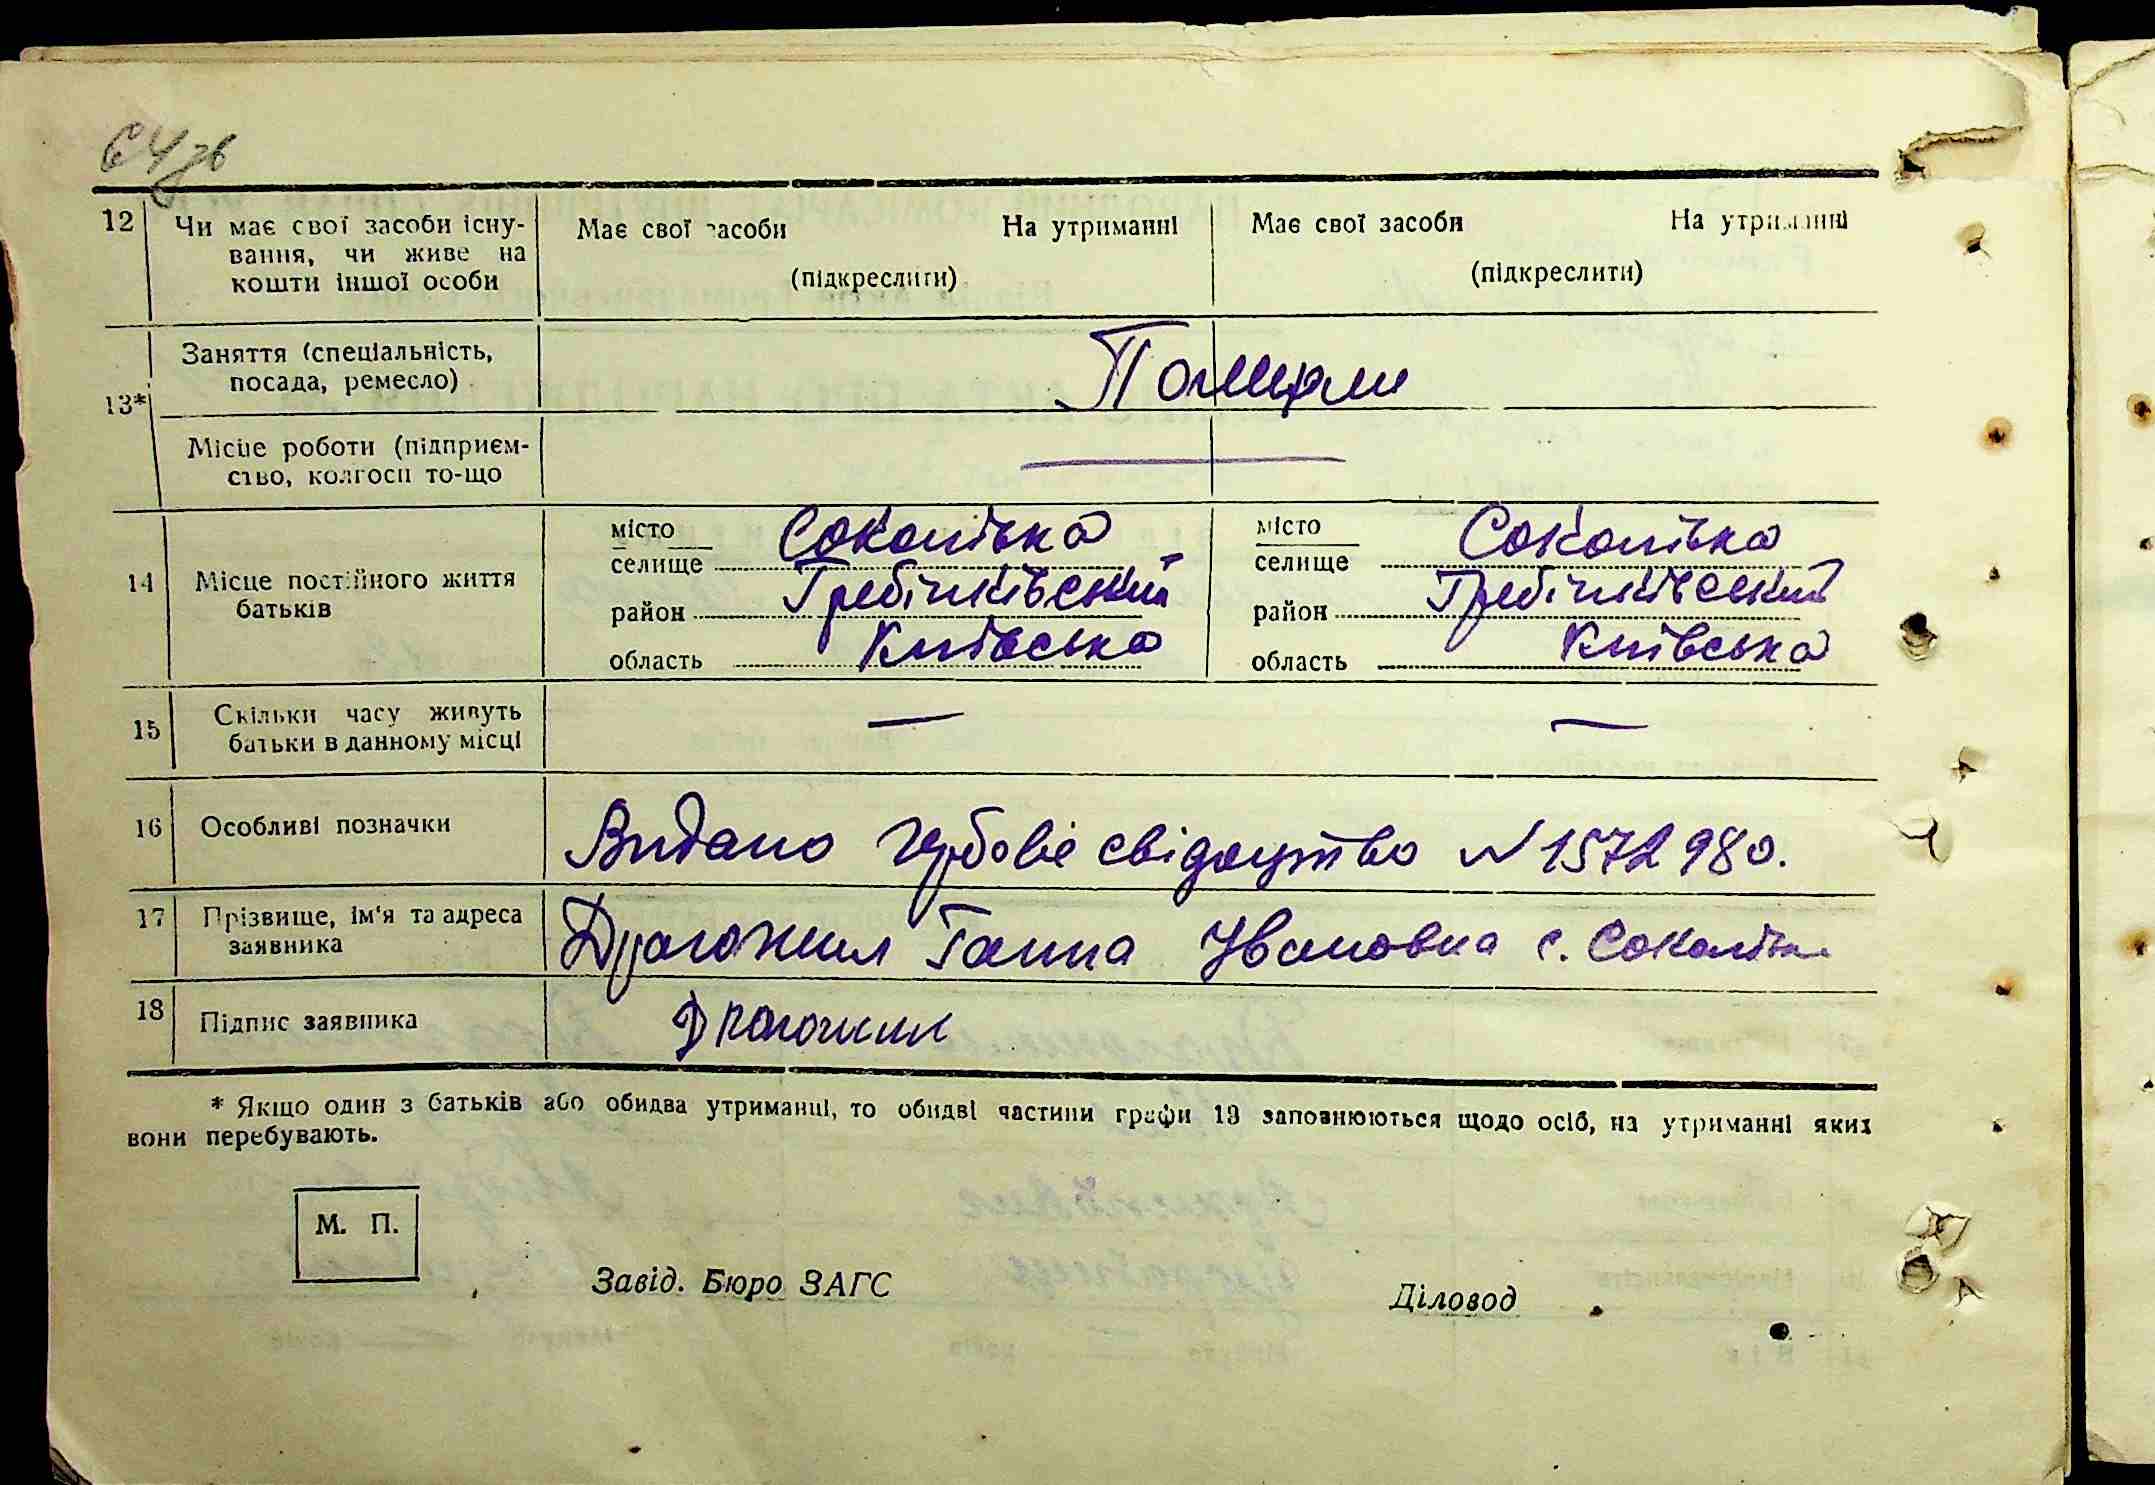 64зв
12 Чи має свої засоби існу- Має свої засоби На утриманні Має свої засоби На утриманні
вання, чи живе на (підкреслити) (підкреслити)
кошти іншої особи
Заняття (спеціальність,
посада, ремесло)
13*
Місце роботи (підприєм-
ство, колгосп то-що
місто Соколівка місто Соколівка
селище селище
14 Місце постійного життя район Гребінківський район Гребінківський
батьків
область Київська область Київська
15 Скільки часу живуть — —
батьки в данному місці
16 Особливі позначки Видано гербове свідоцтво № 1572980.
17 Прізвище, ім'я та адреса Драгожил Ганна Ивановна с. Соколівка
заявника
18 Підпис заявника Драгожил
* Якщо один з батьків або обидва утриманці, то обидві частини графи 13 заповнюються щодо осіб, на утриманні яких
вони перебувають.
М. П.
Завід. Бюро ЗАГС Діловод